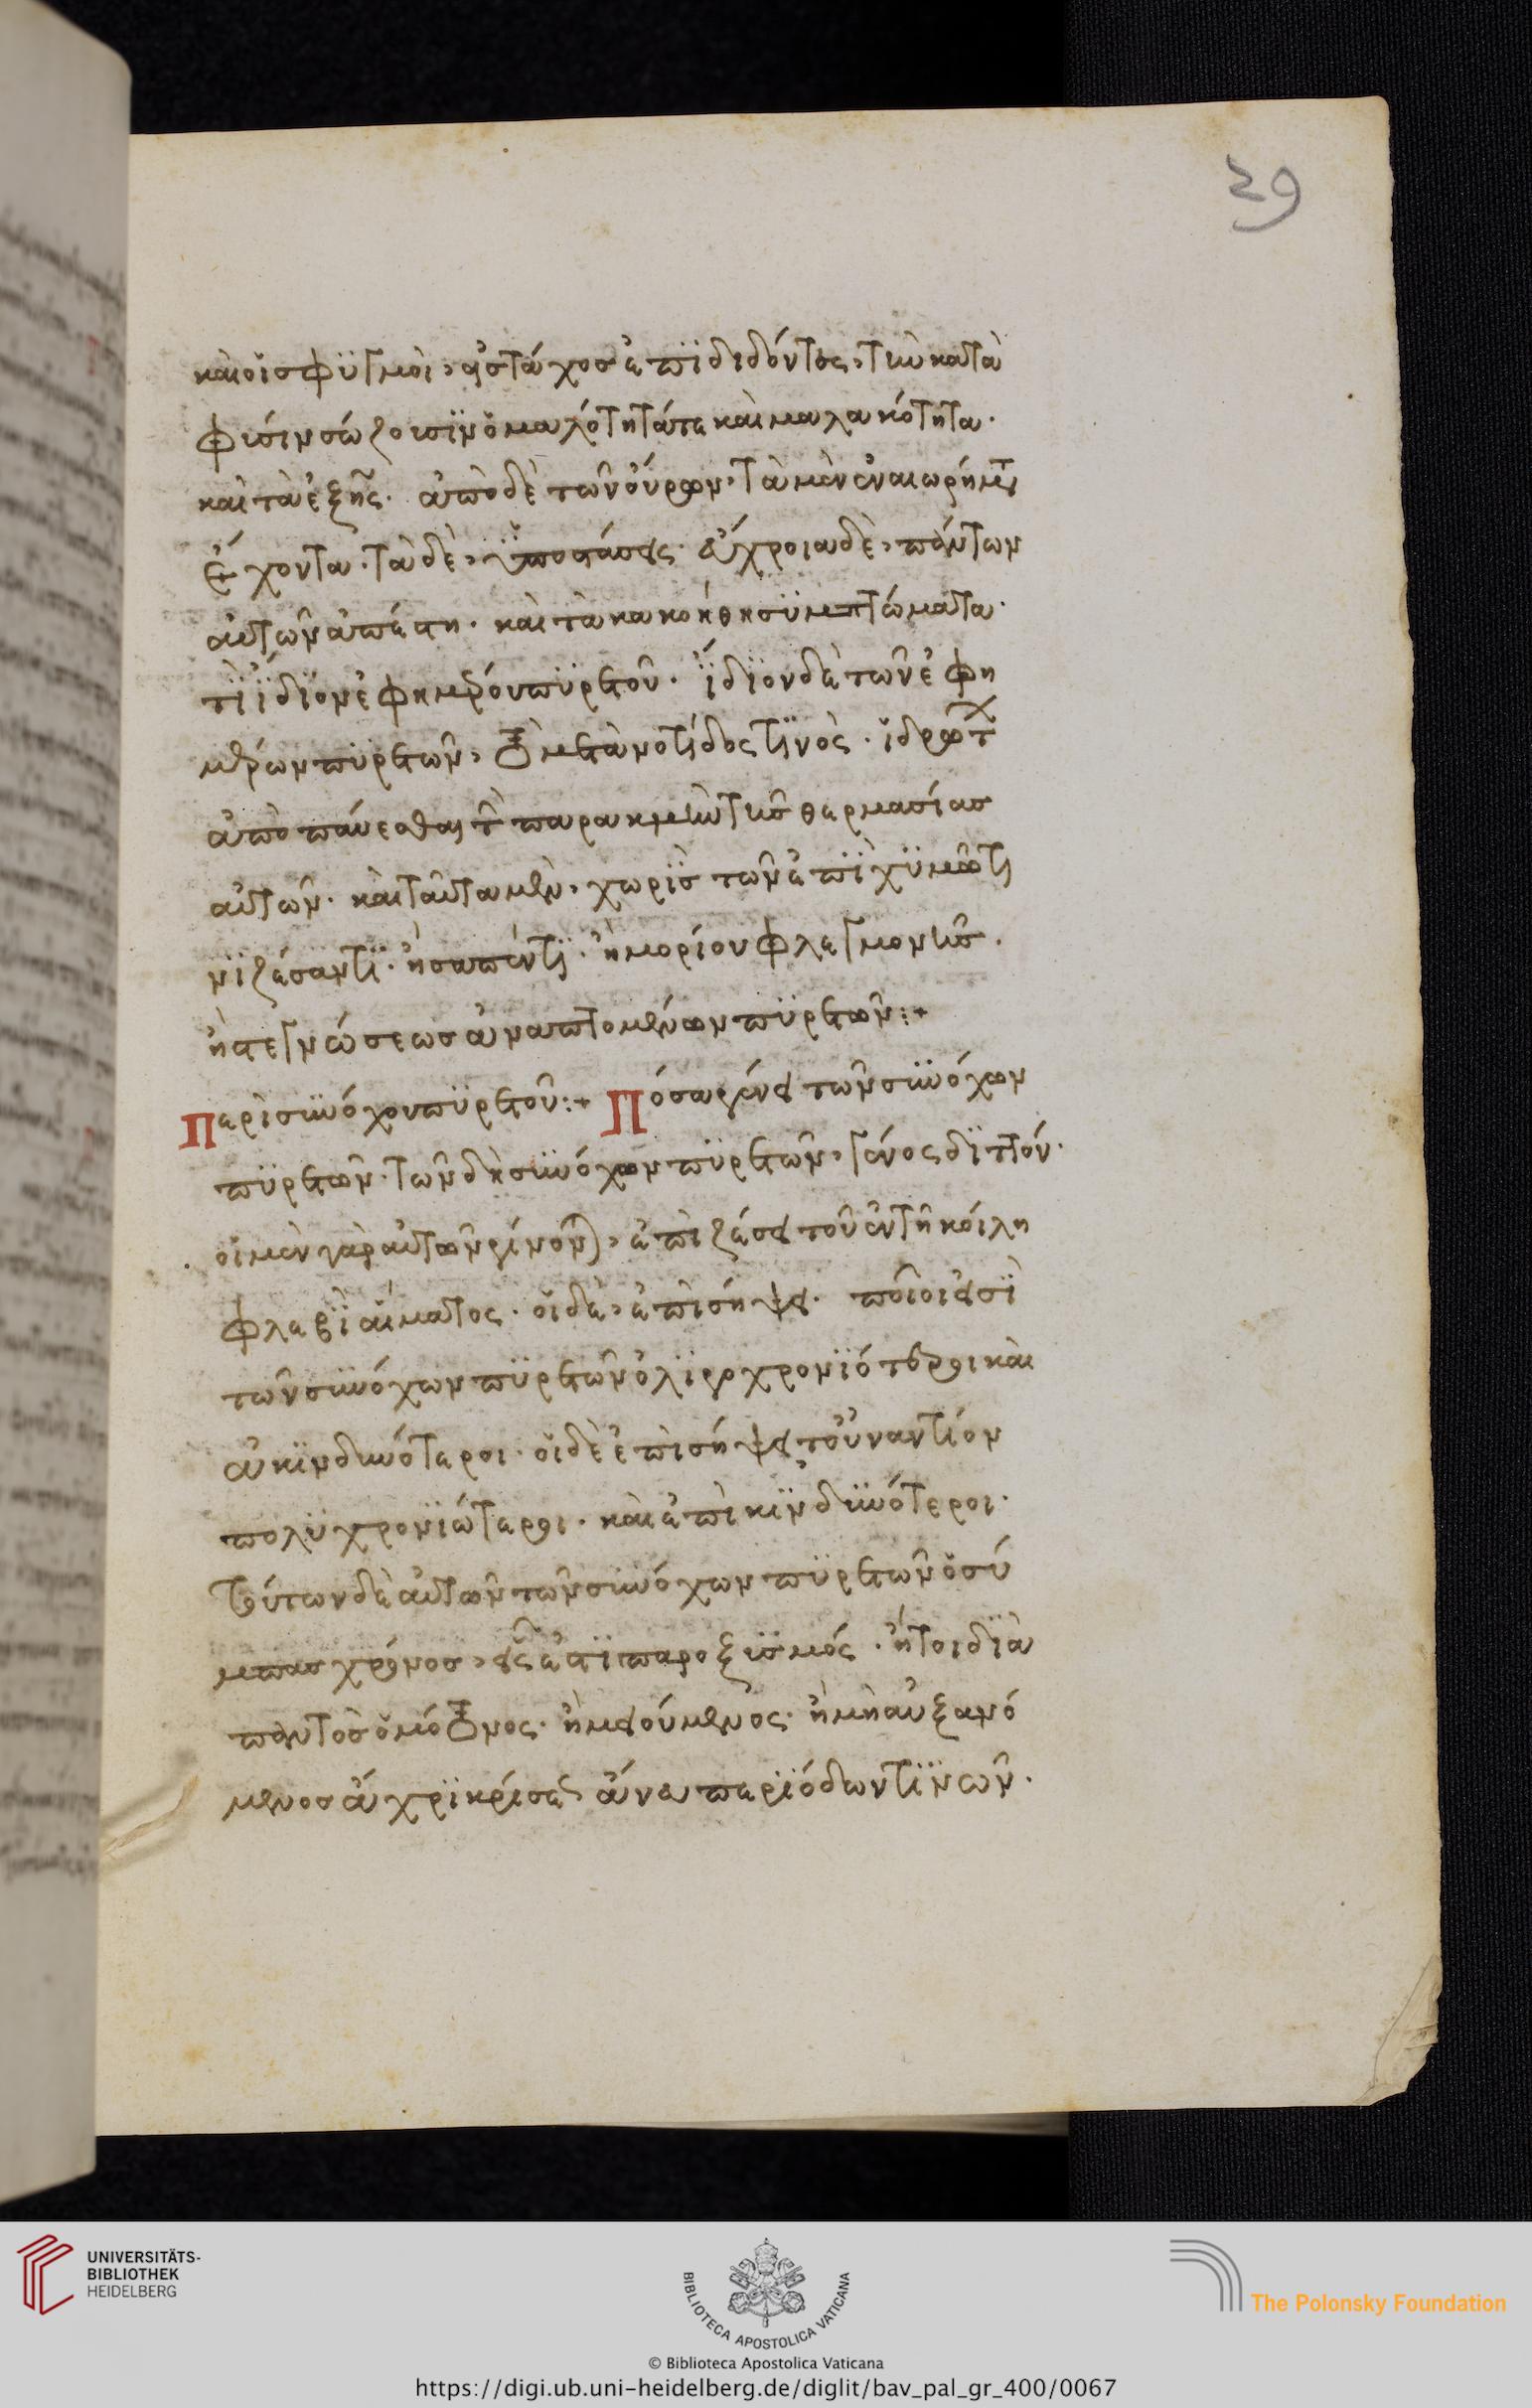 29
καὶ οἱ σφυγμοὶ, εἰς τάχος ἐπιδιδόντες, τὴν κατὰ
φύσιν σώζουσιν ὁμαλότητά τε καὶ μαλακότητα.
καὶ τὰ ἑξῆς. ἀπὸ δὲ τῶν οὔρων, τὰ μὲν ἐναιωρήματα
ἔχοντα. τὰ δὲ, ὑποστάσεις. εὔχροια δὲ, πάντων
αὐτῶν ἄπεστι. καὶ τὰ κακοήθη συμπτώματα.
τί ἴδιον ἐφημέρου πυρετοῦ. ἴδιον δὲ τῶν ἐφη
μέρων πυρετῶν, τὸ μετὰ νοτίδος τινὸς. ἱδρῶτ
ἀποπαύεσθαι τ παρακμὴν τῆς θερμασίας
αὐτῶν. καὶ ταῦτα μὲν, χωρὶς τῶν ἐπὶ χυμῶ τι
νὶ ζέσαντι. ἢ σαπέντι. ἢ μορίου φλεγμονῆς.
ἢ στεγνώσεως ἀναπτομένων πυρετῶν:+
Περὶ συνόχου πυρετοῦ:+ Πόσα γένη τῶν συνόχων
πυρετῶν. τῶν δὴ συνόχων πυρετῶν, γένος διττόν.
οἱ μὲν γὰρ αὐτῶν γίνονται, ἐπὶ ζέσει τοῦ ἐν τῇ κοίλη
φλεβὶ αἵματος. οἱ δὲ, ἐπὶ σήψει. ποῖοι εἰσὶ
τῶν συνόχων πυρετῶν ὀλιγοχρονιότεροι καὶ
ἀκινδυνότεροι. οἱ δὲ ἐπὶ σήψει τοὐναντίον
πολυχρονιώτεροι. καὶ ἐπικινδυνότεροι.
τούτων δὲ αὐτῶν τῶν συνόχων πυρετῶν ὁ σύ
μπας χρόνος, εἷς ἐστὶ παροξυσμός. ἤτοι διὰ
παντὸς ὁμότονος. ἢ μειούμενος. ἢ μὴ αὐξανό
μενος ἄχρι κρίσεως ἄνευ περιόδων τινῶν.
UNIVERSITÄTS-
BIBLIOTHEK
HEIDELBERG
BIBLIOTECA APOSTOLICA VATICANA
The Polonsky Foundation
© Biblioteca Apostolica Vaticana
https://digi.ub.uni-heidelberg.de/diglit/bav_pal_gr_400/0067